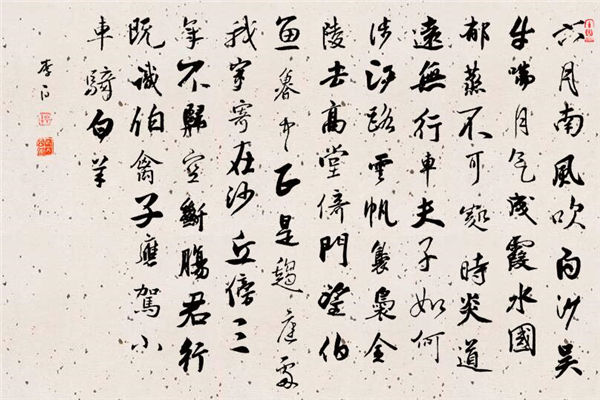 六月南風吹白沙吳
牛喘月气成霞水國
郁蒸不可處時炎道
遠無行車夫子如何
涉江路雲帆裊裊金
陵去高堂倚門望伯
魚魯中正是趨庭處
我家寄在沙丘傍三
年不歸空斷腸君行
既識伯禽子應駕小
車騎白羊
李白